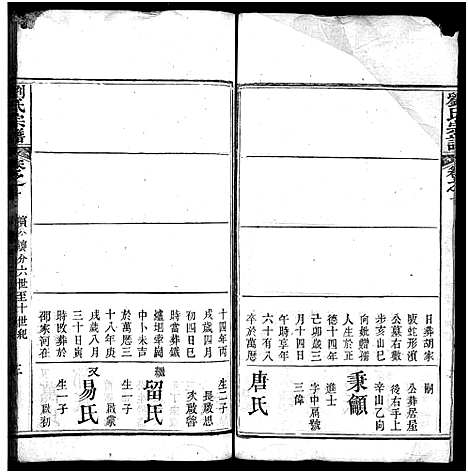 劉氏宗譜
卷之
嗣
公葬居屋
後右手上
辛山乙向
日葬胡家
坂蛇形濱
公墓右數
步亥山巳
向毗贈生
秉顱
人生於正
德十四年
己卯歲三
月十四日
午時享年
六十有八
卒於萬歷
進士
字中扃號
三偉
唐氏
生二子
長啟思
次啟啓
十四年丙
戌歲四月
初四日巳
時當葬鐵
爐坦牽崗
中卜未吉
繼
留氏
生一子
啟業
於萬歷三
十八年庚
戌歲八月
三十日寅
時歿葬於
邵家河在
又
易氏
生一子
啟初
劉氏宗譜
卷之
六世至十世紀